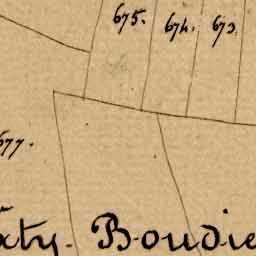 675. 674. 673.
677.
xty. Boudie